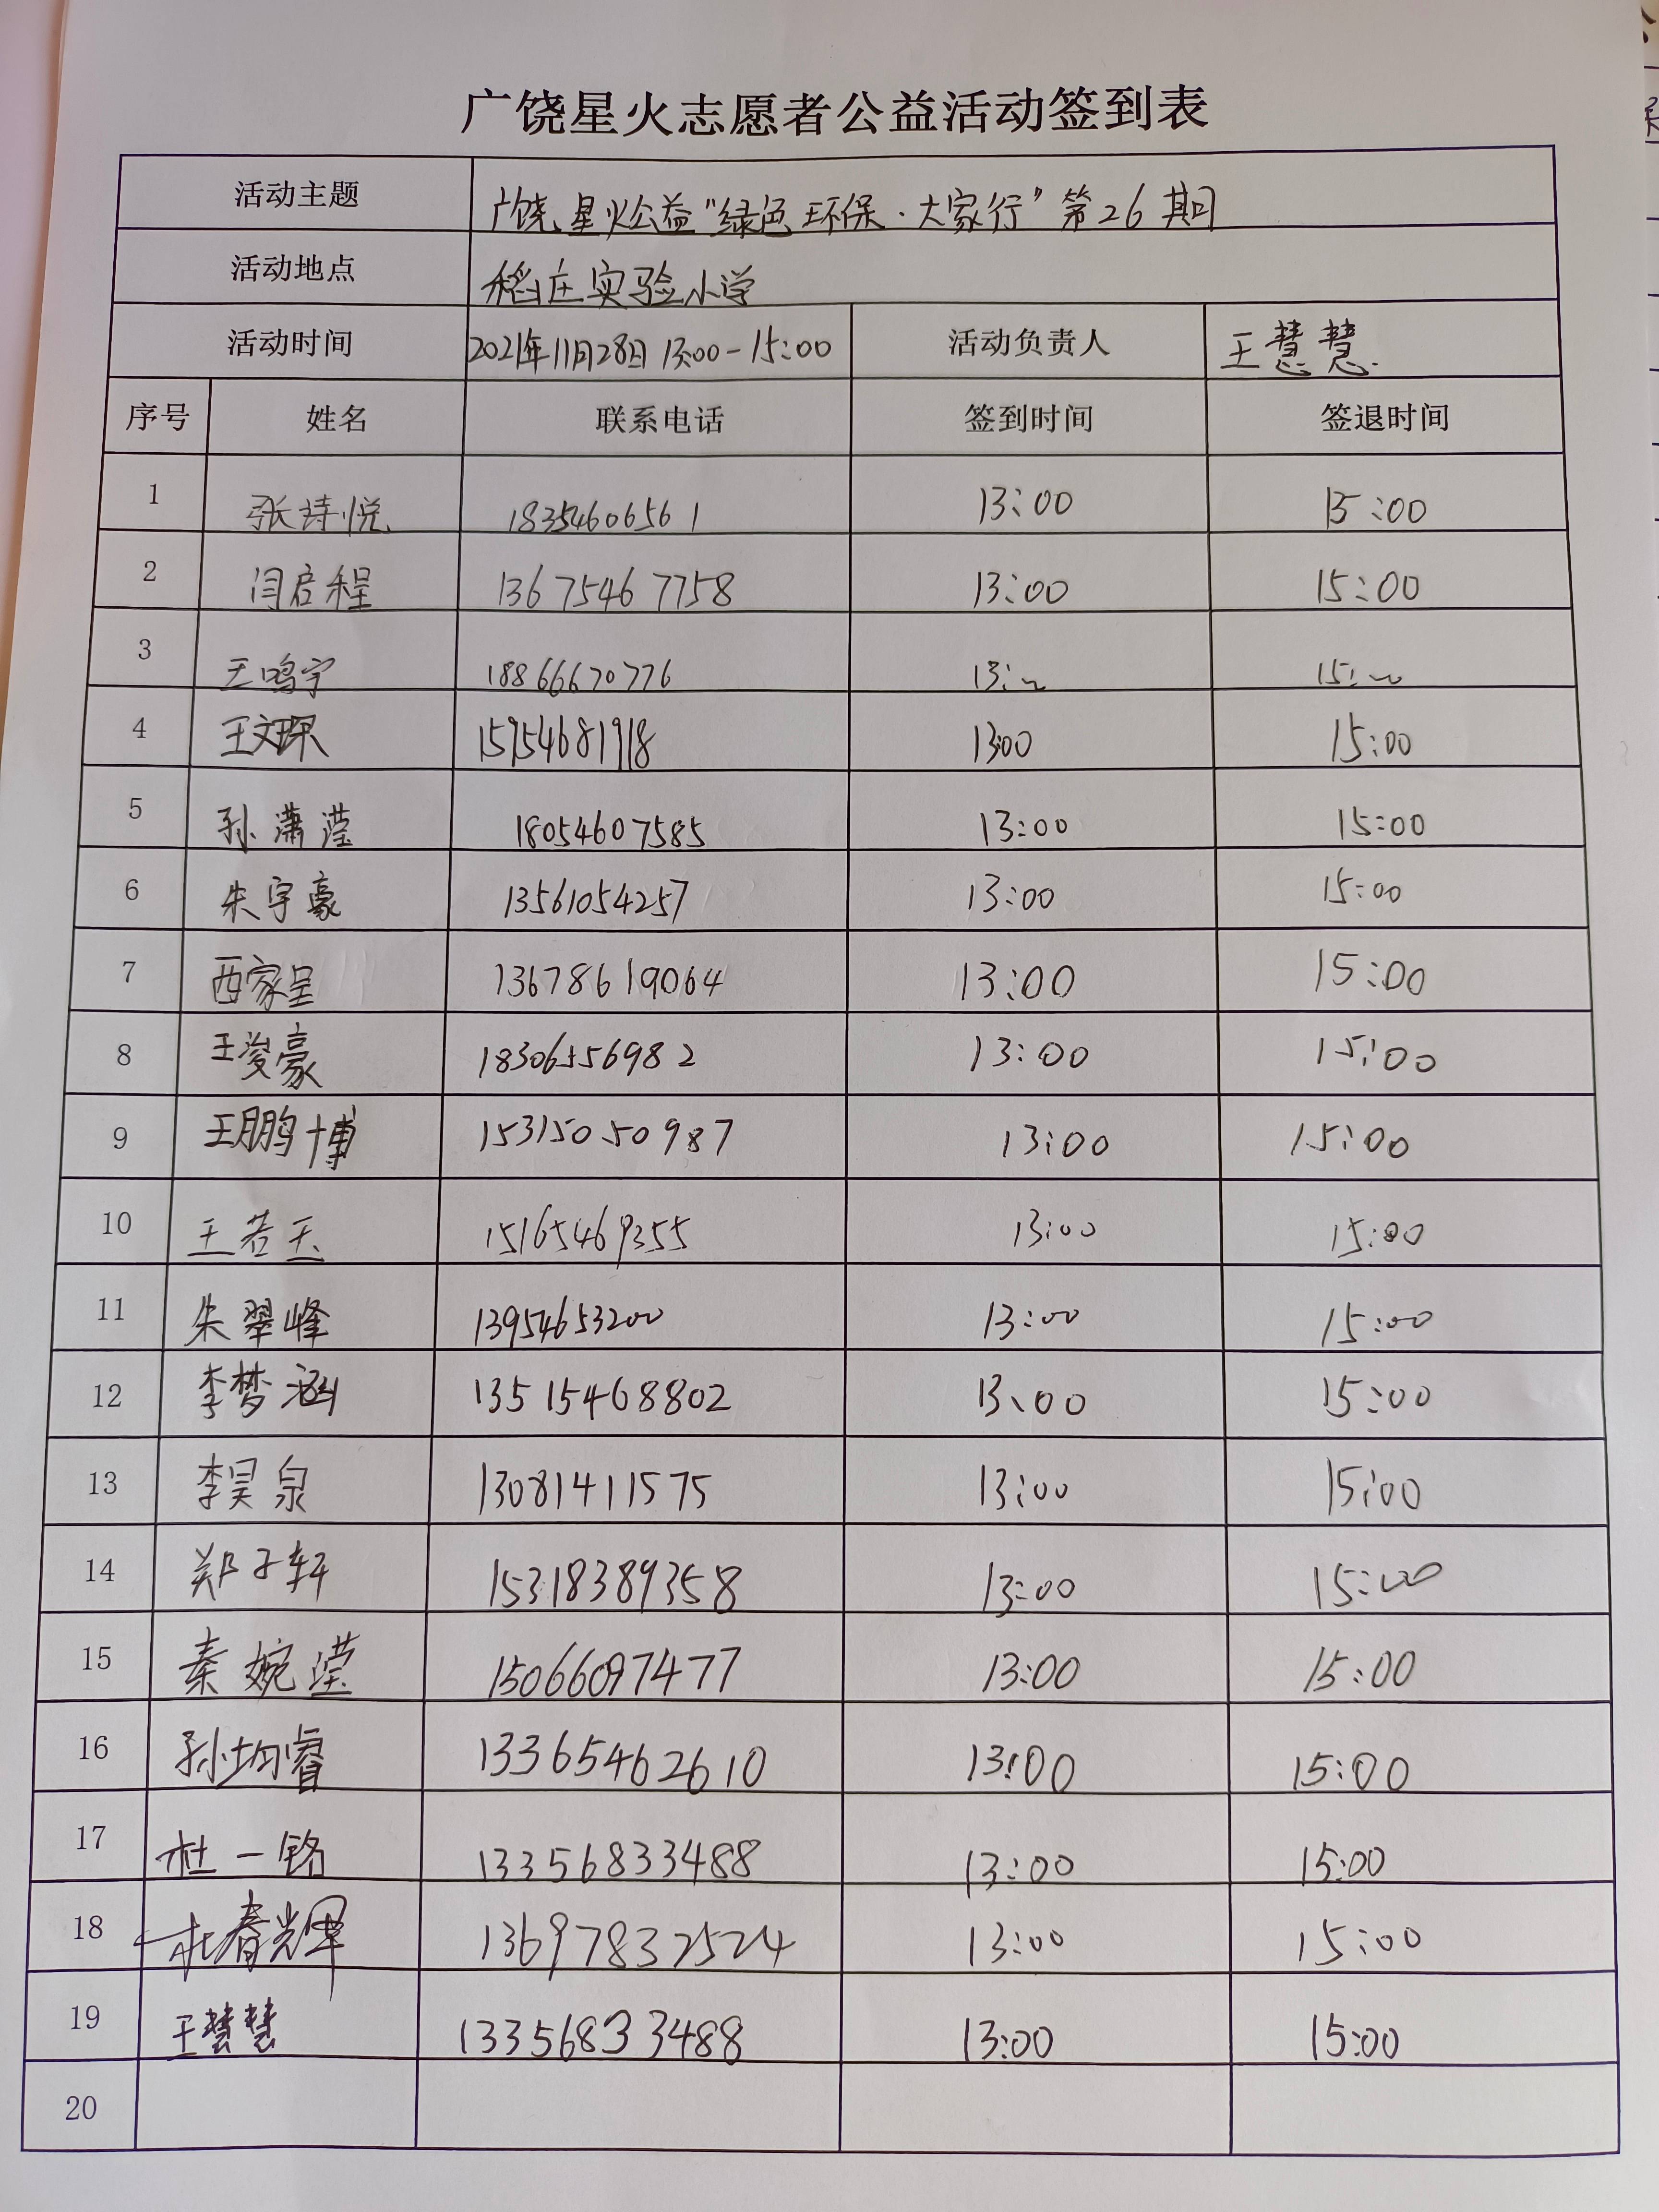 广饶星火志愿者公益活动签到表
活动主题 广饶星火公益"绿色环保·大家行"第26期
活动地点 稻庄实验小学
活动时间 2021年11月28日 13:00-15:00 活动负责人 王慧慧
序号 姓名 联系电话 签到时间 签退时间
1 张诗悦 18354606561 13:00 15:00
2 闫启程 13675467758 13:00 15:00
3 王鸣宇 18866670776 13:00 15:00
4 王文琛 15954681918 13:00 15:00
5 孙潇滢 18054607585 13:00 15:00
6 朱宇豪 13561054257 13:00 15:00
7 西家呈 13678619064 13:00 15:00
8 王浚豪 18306556982 13:00 15:00
9 王鹏博 15315050987 13:00 15:00
10 王若玉 15165469355 13:00 15:00
11 朱翠峰 13954653200 13:00 15:00
12 李梦涵 13515468802 13:00 15:00
13 李昊泉 13081411575 13:00 15:00
14 郑子轩 15318389358 13:00 15:00
15 秦婉滢 15066097477 13:00 15:00
16 孙均睿 13365462610 13:00 15:00
17 杜一铭 13356833488 13:00 15:00
18 杜春辉 13697832524 13:00 15:00
19 王慧慧 13356833488 13:00 15:00
20